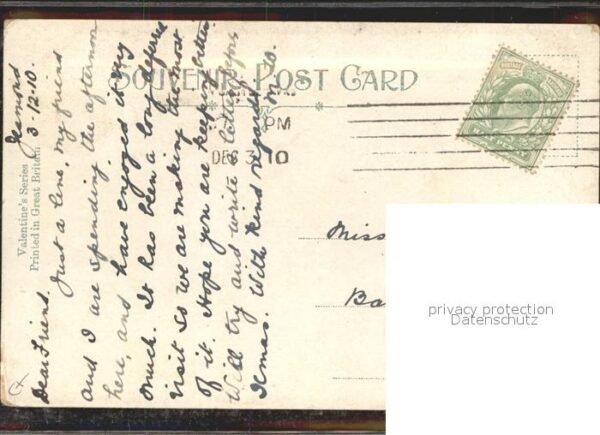 SOUVENIR POST CARD
Valentine's Series
Printed in Great Britain
PM
DEC 3 10
3-12-10.
Dear Friend.
Just a line, my friend
and I are spending the afternoon
here, and have enjoyed it very
much. It has been a long deferred
visit so we are making the most
of it. Hope you are keeping better
Will try and write a letter before
Xmas. With kind regards
Miss
Ba
privacy protection
Datenschutz